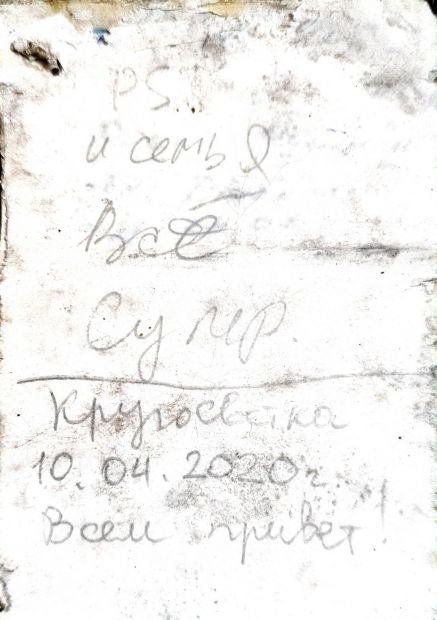 PS.
и семья
Всё
Супер.
Кругосветка
10.04.2020г.
Всем привет!